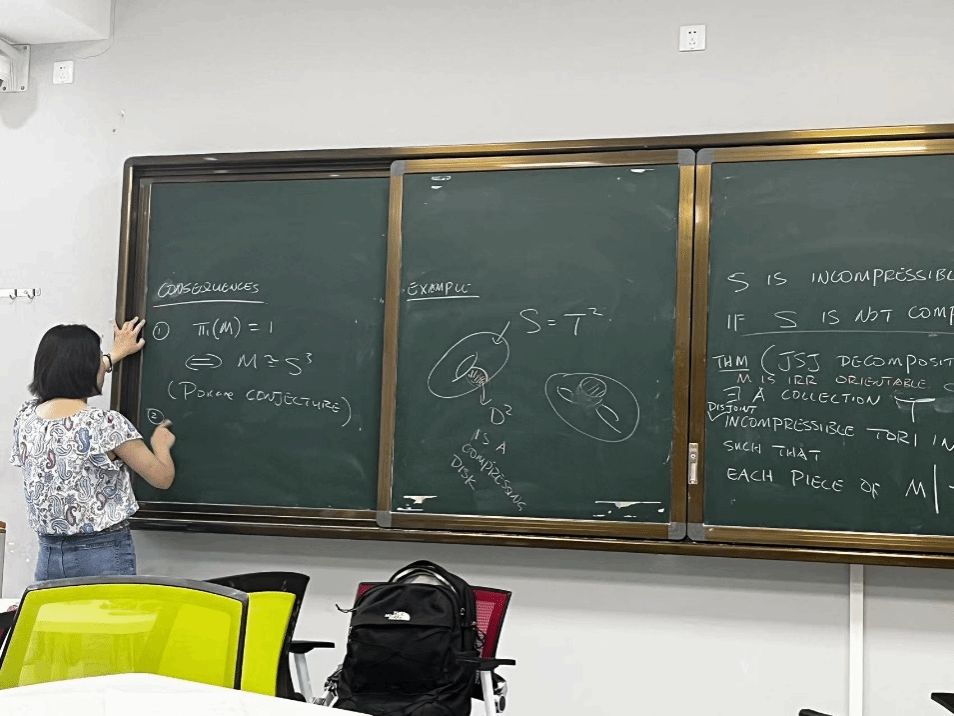 CONSEQUENCES
① π₁(M) = 1
⟺ M ≅ S³
(POKARE CONJECTURE)
②
EXAMPLE
S = T²
D²
IS A
COMPRESING
DISK
S IS INCOMPRESSIBL
IF S IS NOT COMP
THM (JSJ DECOMPOSIT
M IS IRR ORIENTABLE
∃ A COLLECTION T
DISJOINT
INCOMPRESSIBLE TORI IN
SUCH THAT
EACH PIECE OF M|
THE NORTH FACE